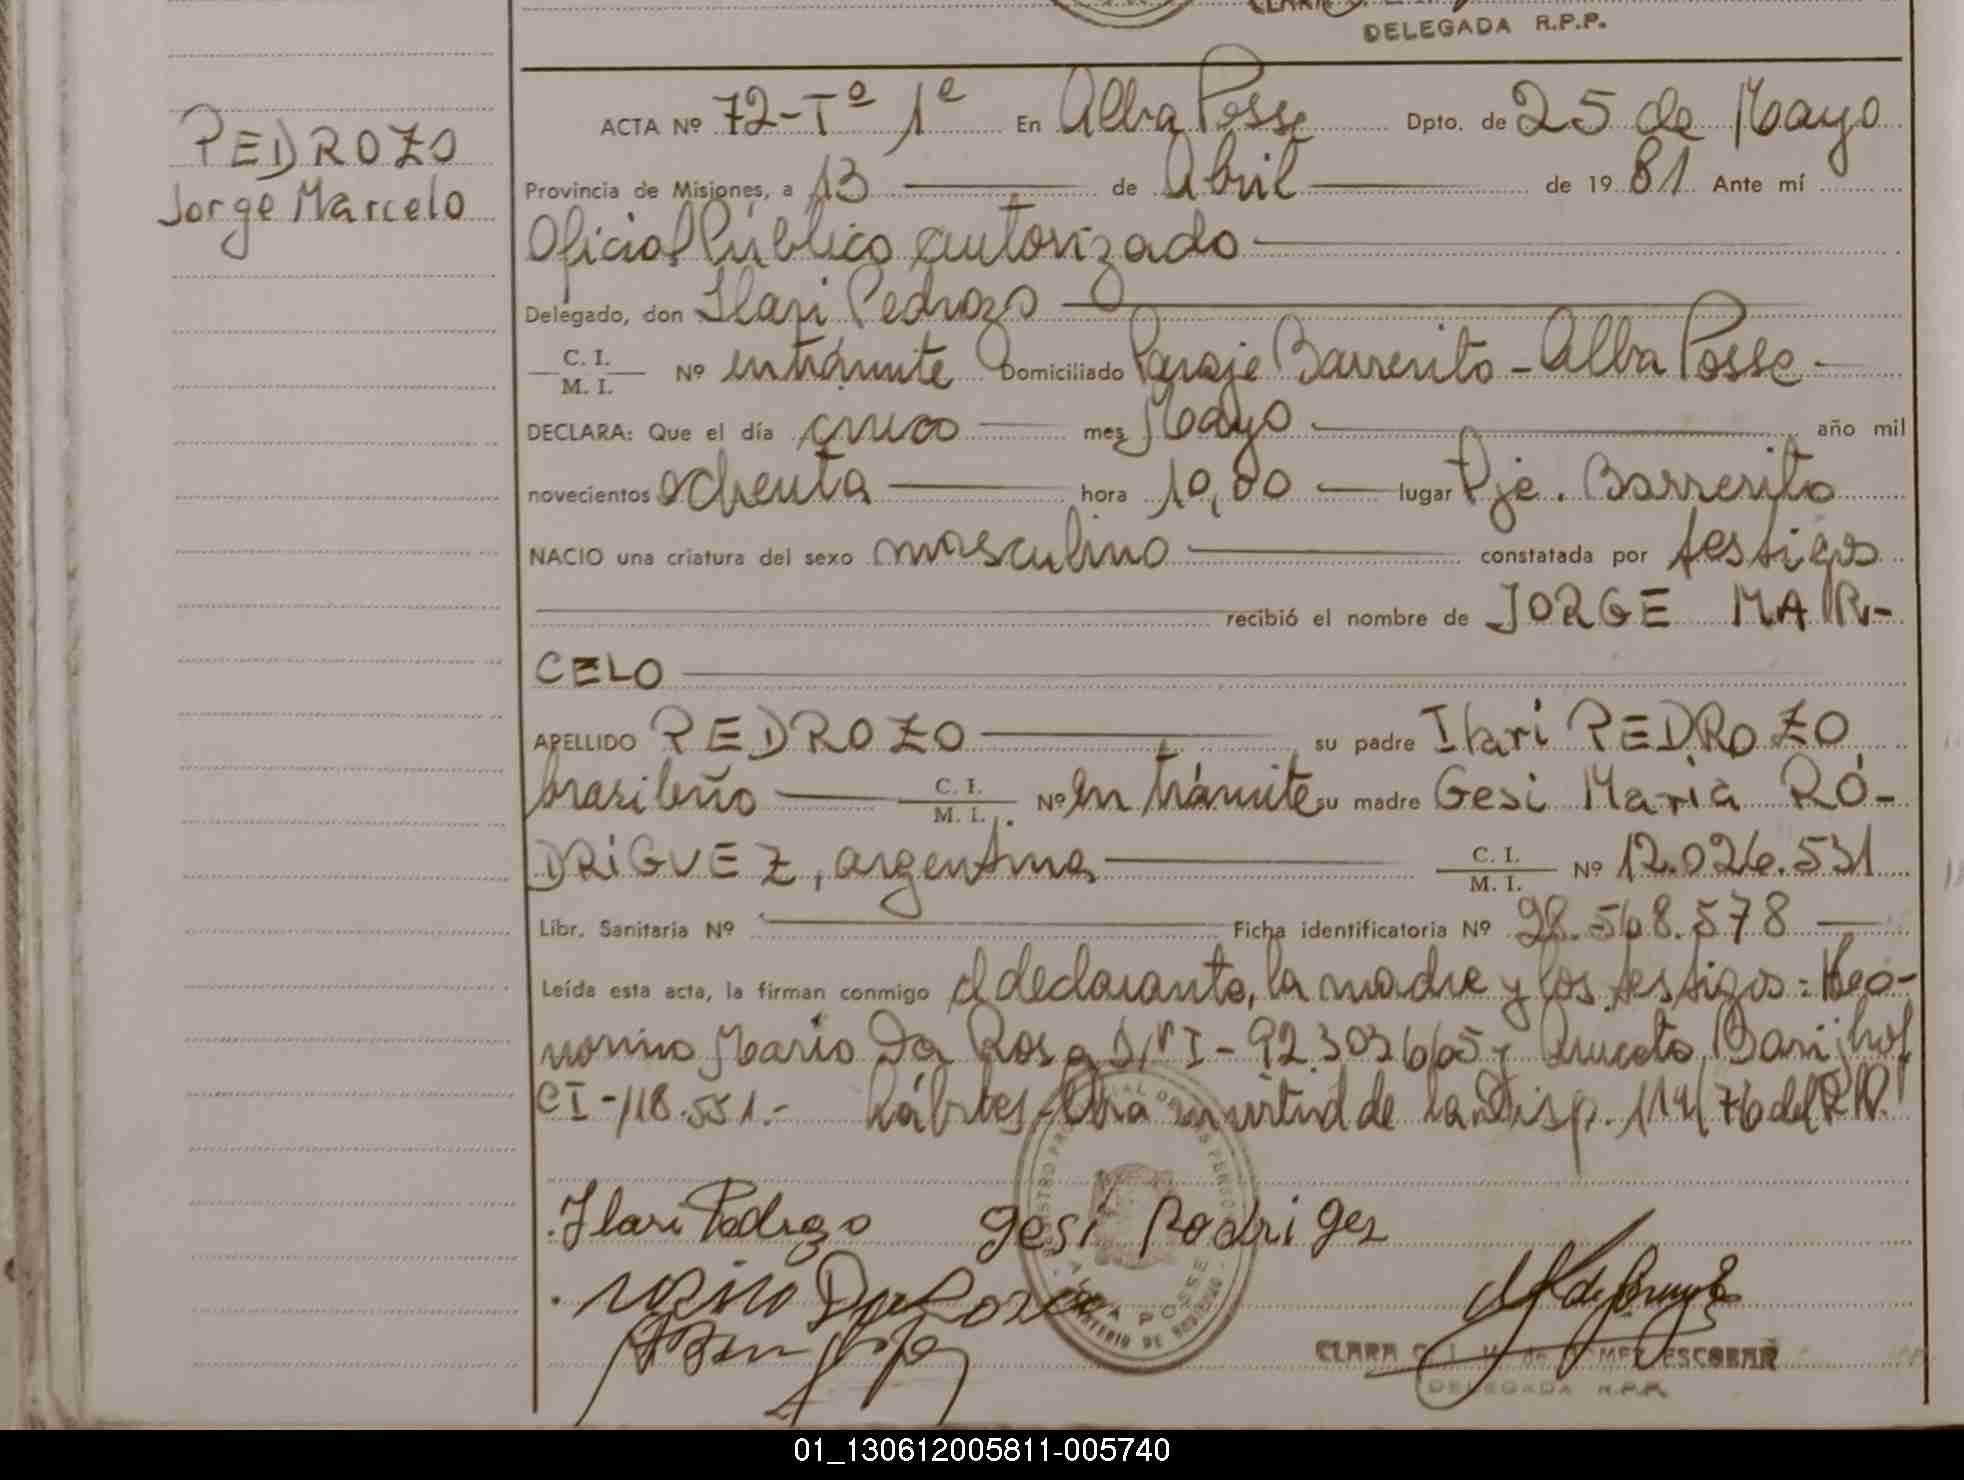 DELEGADA R.P.P.
PEDROZO
Jorge Marcelo
ACTA Nº 72-Tº 1º En Alba Posse Dpto. de 25 de Mayo
Provincia de Misiones, a 13 de Abril de 1981 Ante mí
Oficial Público autorizado
Delegado, don Ilari Pedrozo
C. I. / M. I. Nº en trámite Domiciliado Paraje Barrerito - Alba Posse -
DECLARA: Que el día cinco mes Mayo año mil
novecientos ochenta hora 10,00 lugar Pje. Barrerito
NACIO una criatura del sexo masculino constatada por testigos
recibió el nombre de JORGE MAR-
CELO
APELLIDO PEDROZO su padre Ilari PEDROZO
brasileño C. I. / M. I. Nº en trámite su madre Gesi Maria RÓ-
DRIGUEZ, argentina C. I. / M. I. Nº 12.026.531
Libr. Sanitaria Nº Ficha identificatoria Nº 98.568.578
Leída esta acta, la firman conmigo el declarante, la madre y los testigos:
Mario Da Rosa I - 92.303665 y
CI - 118.551.- hábiles. en virtud de la Disp. 114/76 del R.P.
Ilari Pedrozo Gesi Rodriges
Da Rosa
ALBA POSSE
CLARA ESCOBAR
DELEGADA R.P.P.
01_130612005811-005740